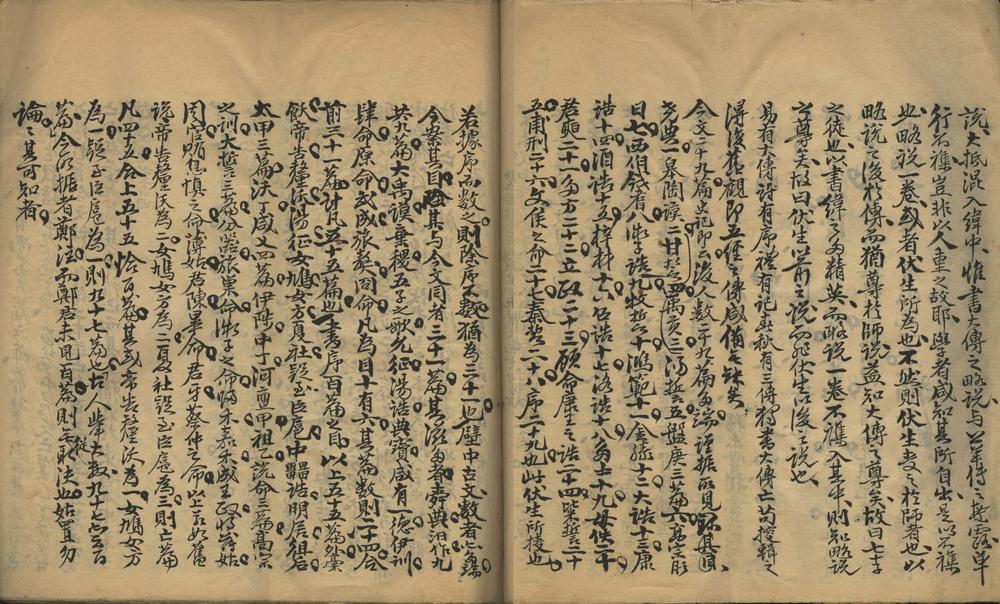 說大抵混入緯中惟書大傳之略說與公羊傳之繁露單
行不襍豈非以人重之故耶學者咸知其所自出是以不襍
也略說一卷或者伏生所為也不然則伏生受之於師者也以
略說之後於傳而猶尊於師說益知大傳之尊矣故曰七十
之徒也以書緯之多精英而略說一卷不襍入其中則知略說
之尊矣故曰伏生以前之說而非伏生以後之說也
易有大傳詩有序禮有記春秋有三傳獨書大傳亡苟掇輯之
得復舊觀即五經之傳咸備無缺矣
今文二十九篇史記所云後人數二十九篇多端謹据所見録其目
堯典一皋陶謨二甘誓四禹貢三湯誓五盤庚三篇六高宗肜
日七西伯戡耆八微子九牧誓十鴻範十一金縢十二大誥十三康
誥十四酒誥十五梓材十六召誥十七洛誥十八多士十九毋佚二十
君奭二十一多方二十二立政二十三顧命康王之誥二十四粊誓二十
五甫刑二十六文侯之命二十七秦誓二十八序二十九也此伏生所授也
若據序而數之則除序不數猶為三十一也壁中古文數者
今案其目除其與今文同者三十一篇其滋多者舜典汨作九
共九篇大禹謨棄稷五子之歌允征湯誥典寶咸有一德伊訓
肆命原命武成旅獒冏命凡為目十有六其篇數則二十四合
前三十一篇計凡五十五篇也書序百篇之目以上五十五篇外槀
飫帝告釐沃湯征女鳩女方夏社疑至臣扈中䵻誥明居徂后
太甲三篇沃丁咸乂四篇伊陟中丁河亶甲祖乙說命三篇高宗
之訓大誓三篇分器旅巢命微子之命歸禾嘉禾成王政將蒲姑
周官賄息慎之命亳姑君陳畢命君牙蔡仲之命以上取舊
說帝告釐沃為二女鳩女方為二夏社疑至臣扈為三則亡篇
凡四十五合上五十五恰百篇其或帝告釐沃為一女鳩女方
為一疑至臣扈為一則九十七篇也古人舉大數九十七亦云百
篇今所据者鄭注而鄭君未見百篇則無取決也姑置勿
論論其可知者